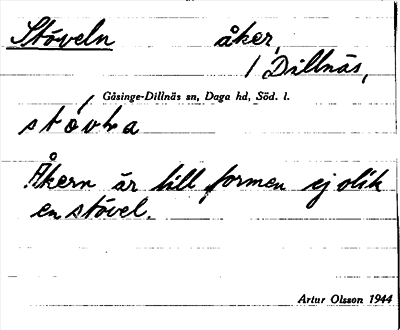 Stöveln åker,
1 Dillnäs,
Gåsinge-Dillnäs sn, Daga hd, Söd. l.
Åkern är till formen ej olik
en stövel.
Artur Olsson 1944